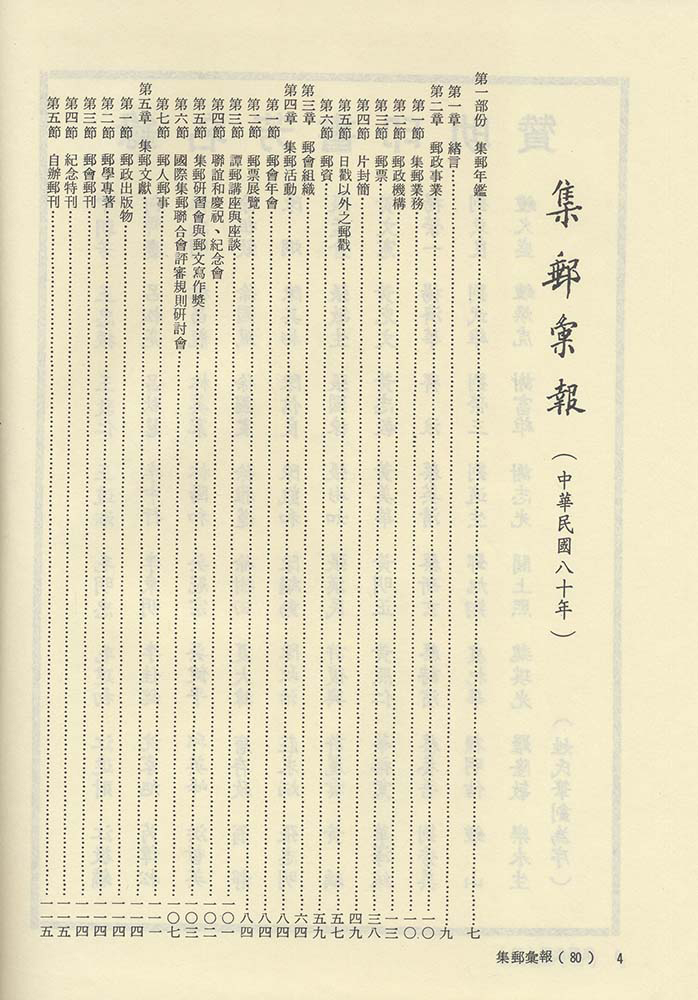 集郵彙報(中華民國八十年)
第一部份 集郵年鑑……七
第一章 緒言……九
第二章 郵政事業……一〇
第一節 集郵業務……一〇
第二節 郵政機構……一三
第三節 郵票……三八
第四節 片封簡……四九
第五節 日戳以外之郵戳……五七
第六節 郵資……五九
第三章 郵會組織……六四
第四章 集郵活動……八四
第一節 郵會年會……八四
第二節 郵票展覽……八四
第三節 譚郵講座與座談……一〇一
第四節 聯誼和慶祝、紀念會……一〇二
第五節 集郵研習會與郵文寫作獎……一〇三
第六節 國際集郵聯合會評審規則研討會……一〇七
第七節 郵人郵事……一一一
第五章 集郵文獻……一一四
第一節 郵政出版物……一一四
第二節 郵學專著……一一四
第三節 郵會郵刊……一一四
第四節 紀念特刊……一一五
第五節 自辦郵刊……一一五
集郵彙報(80) 4